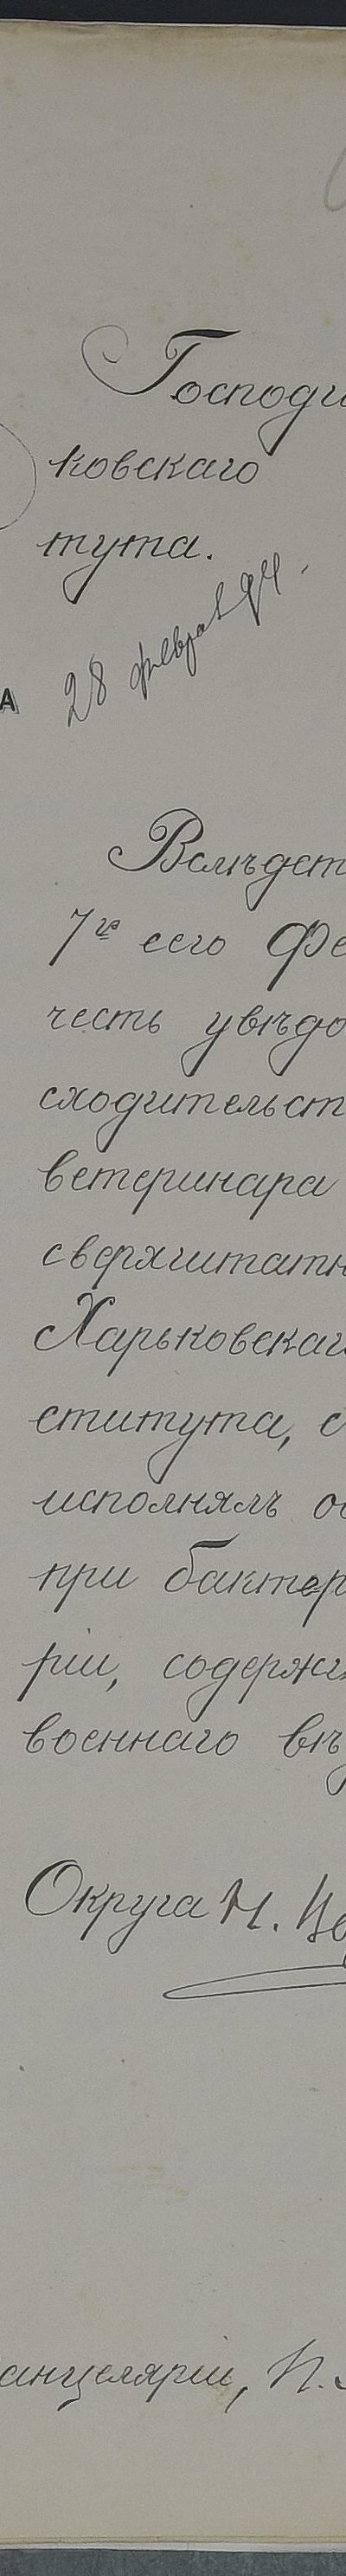 Господи
ковскаго
тута.
28 феврал 94.
А
Вслѣдст
7го сего Фе
честь увѣдо
сходительст
ветеринара
сверхштатн
Харьковскаг
ститута, с
исполнялъ об
при бактер
ріи, содержи
военнаго вѣ
Округа Н.
анцеляріи, Н.